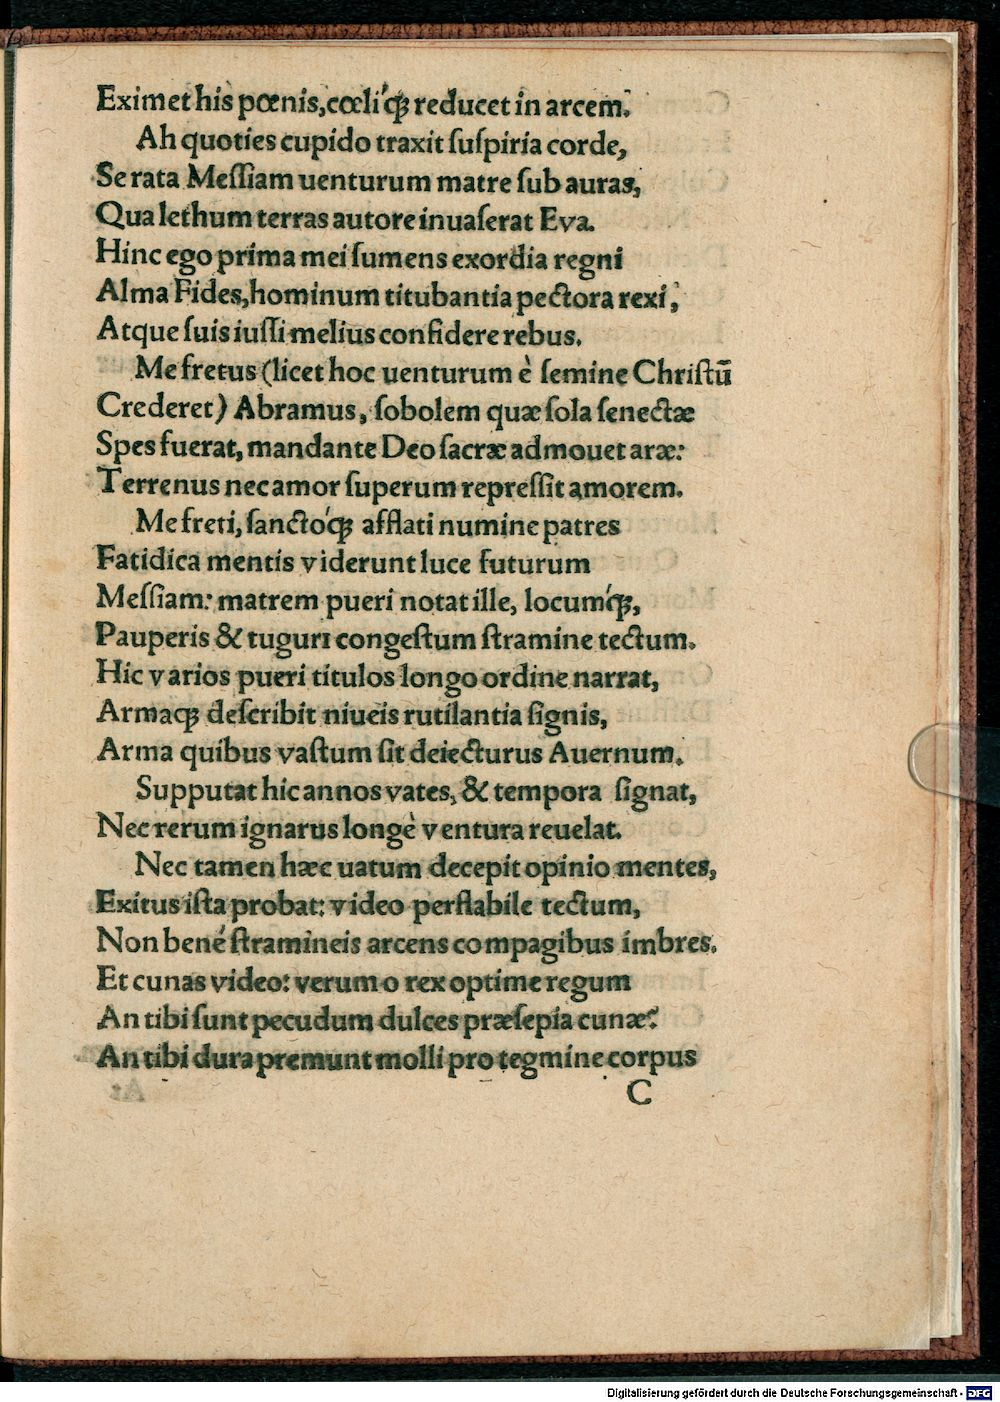 Eximet his pœnis, cœli´q; reducet in arcem.
Ah quoties cupido traxit ſuſpiria corde,
Se rata Meſſiam uenturum matre ſub auras,
Qua lethum terras autore inuaſerat Eva.
Hinc ego prima mei ſumens exordia regni
Alma Fides, hominum titubantia pectora rexi,
Atque ſuis iuſſi melius confidere rebus.
Me fretus (licet hoc uenturum è ſemine Chriſtũ
Crederet) Abramus, ſobolem quæ ſola ſenectæ
Spes fuerat, mandante Deo ſacræ admouet aræ:
Terrenus nec amor ſuperum repreſſit amorem.
Me freti, ſancto´q; afflati numine patres
Fatidica mentis viderunt luce futurum
Meſſiam: matrem pueri notat ille, locum´q;,
Pauperis & tuguri congeſtum ſtramine tectum.
Hic varios pueri titulos longo ordine narrat,
Armaq; deſcribit niueis rutilantia ſignis,
Arma quibus vaſtum ſit deiecturus Auernum.
Supputat hic annos vates, & tempora ſignat,
Nec rerum ignarus longè ventura reuelat.
Nec tamen hæc uatum decepit opinio mentes,
Exitus iſta probat: video perflabile tectum,
Non bené ſtramineis arcens compagibus imbres.
Et cunas video: verum o rex optime regum
An tibi ſunt pecudum dulces præſepia cunæ?
An tibi dura premunt molli pro tegmine corpus
C
Digitalisierung gefördert durch die Deutsche Forschungsgemeinschaft - DFG